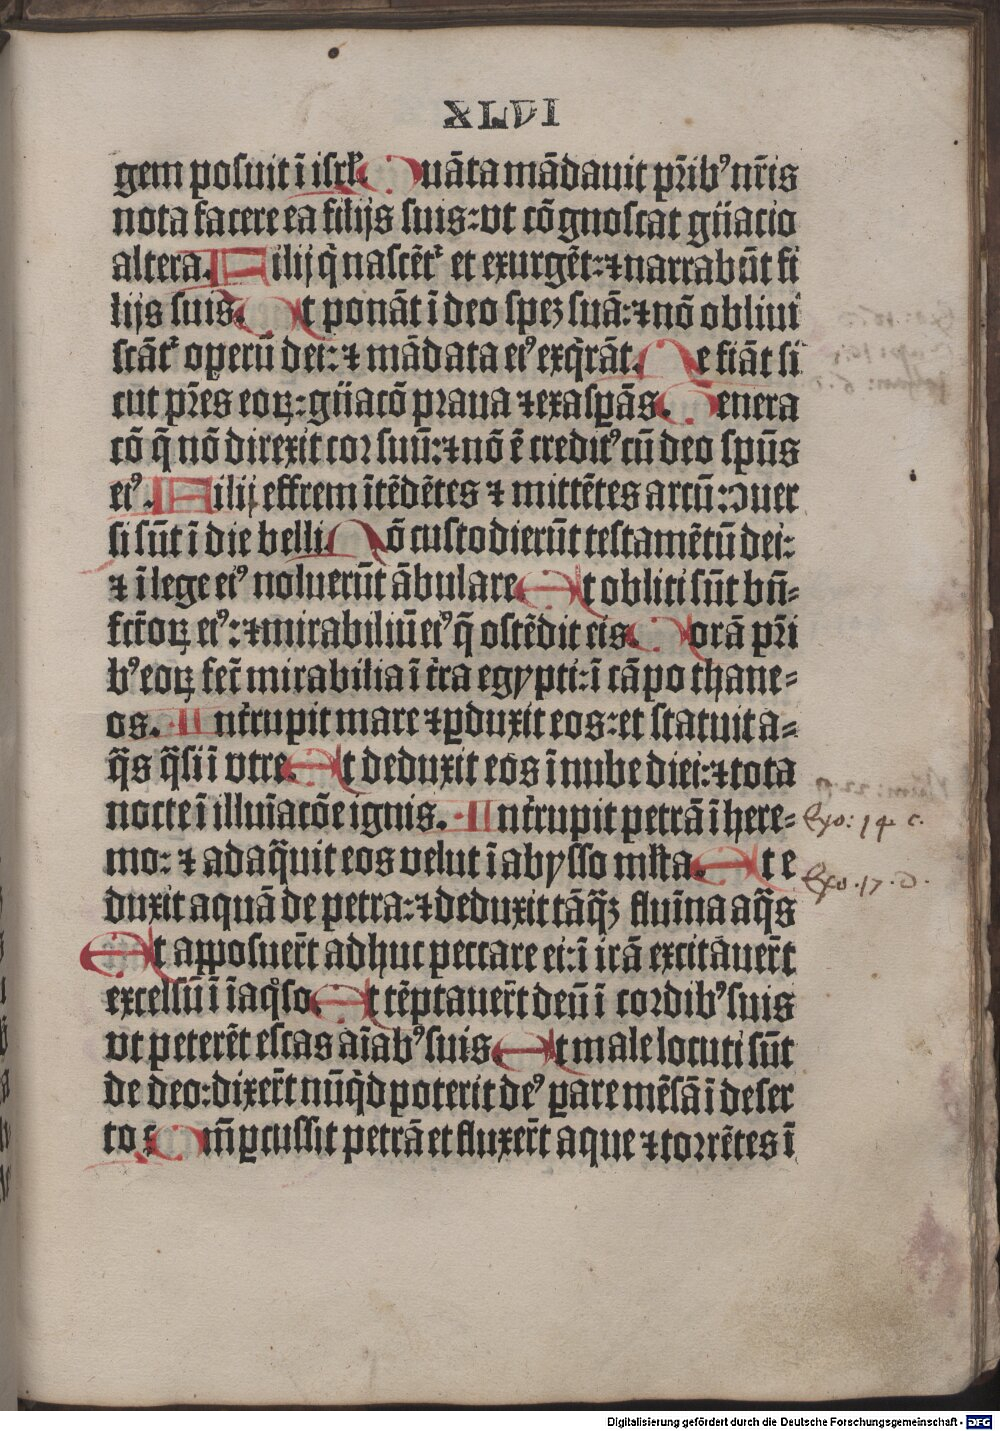 XLVI
gem posuit ī isrl̕. Quāta mādauit pr̄ibꝰ nr̄is
nota facere ea filijs suis: vt cōgnoscat gn̄acio
altera. Filij q̄ nascēt᷑ et exurgēt: ⁊ narrabūt fi
lijs suis. Ut ponāt ī deo spez suā: ⁊ nō obliui
scāt᷑ operū dei: ⁊ mādata eiꝰ exq̄rāt. Ne fiāt si
cut pr̄es eoꝝ: gn̄acō praua ⁊ exasꝑās. Genera
cō q̄ nō direxit cor suū: ⁊ nō ē creditꝰ cū deo spūs
eiꝰ. Filij effrem ītēdētes ⁊ mittētes arcū: ꝯuer
si sūt ī die belli. Nō custodierūt testamētū dei:
⁊ ī lege eiꝰ noluerūt ābulare. Et obliti sūt bn̄-
fct̄oꝝ eiꝰ: ⁊ mirabiliū eiꝰ q̄ ostēdit eis. Corā pr̄i
bꝰ eoꝝ fec̄ mirabilia ī tr̄ra egypti: ī cāpo thane-
os. Int̄rupit mare ⁊ ꝑduxit eos: et statuit a-
q̄s q̄si ī vtre. Et deduxit eos ī nube diei: ⁊ tota
nocte ī illuīacōe ignis. Int̄rupit petrā ī here-
mo: ⁊ adaq̄uit eos velut ī abysso ml̄ta. Et e
duxit aquā de petra: ⁊ deduxit tāq̄ꝫ fluīna aq̄s
Et apposuer̄t adhuc peccare ei: ī irā excitāuer̄t
excelsū ī īaq̊so. Et tēptauer̄t deū ī cordibꝰ suis
vt peterēt escas aīabꝰ suis. Et male locuti sūt
de deo: dixer̄t nūq̊d poterit deꝰ ꝑare mēsā ī deser
to. Qm̄ ꝑcussit petrā et fluxer̄t aque ⁊ torrētes ī
Exo: 14 c.
Exo. 17. d.
Digitalisierung gefördert durch die Deutsche Forschungsgemeinschaft - DFG